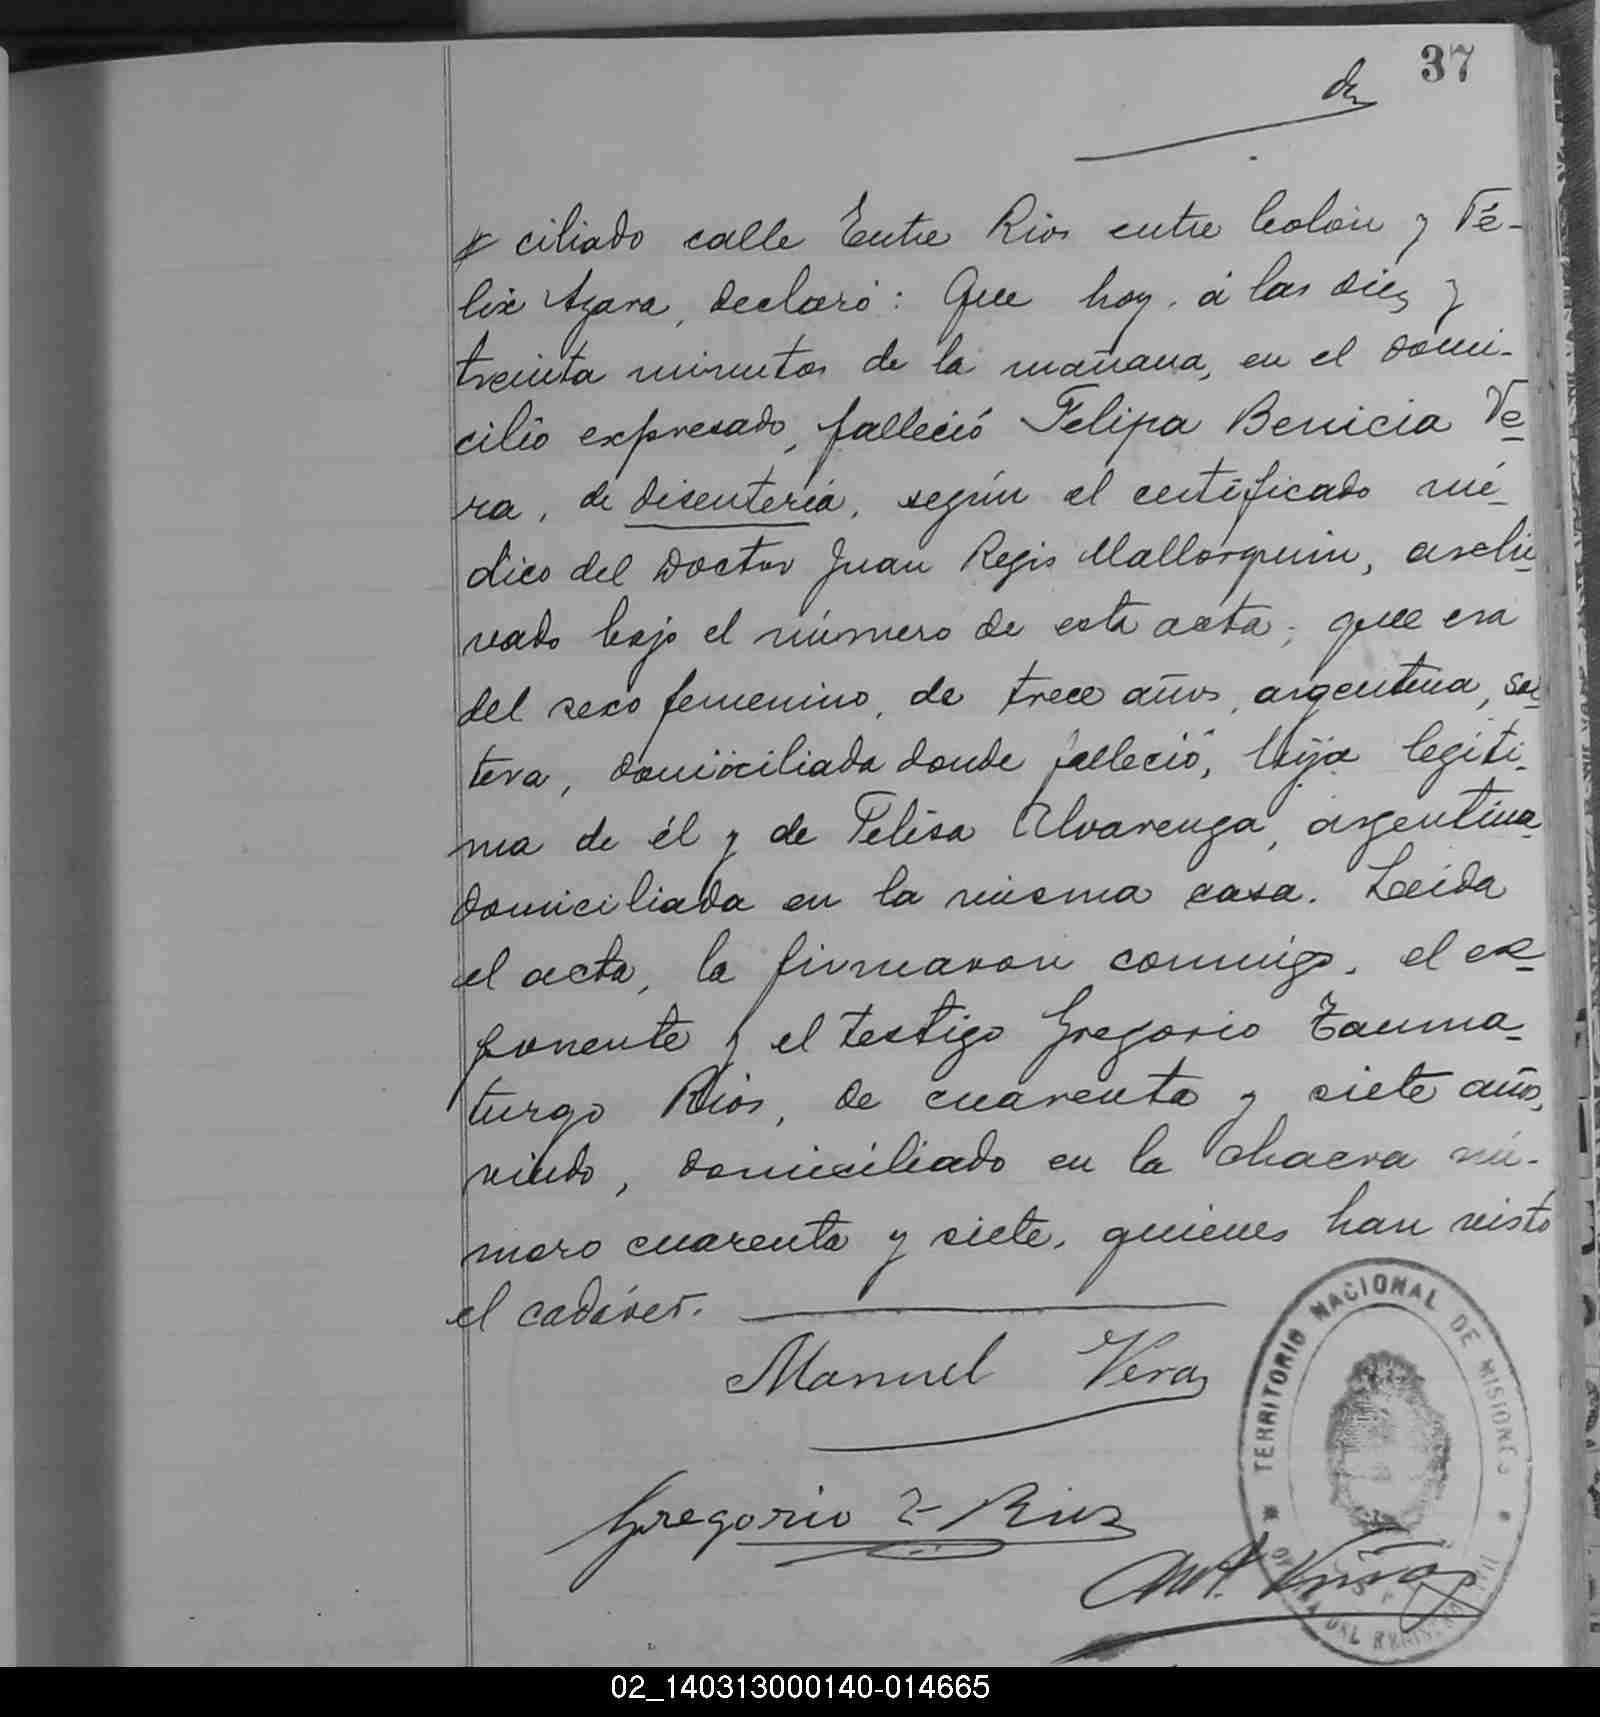 37
ciliado calle Entre Rios entre Colón y Fé-
lix Azara, declaró: Que hoy, á las diez y
treinta minutos de la mañana, en el domi-
cilio expresado, falleció Felipa Benicia Ve-
ra, de disentería, según el certificado mé-
dico del Doctor Juan Regis Mallorquin, archi-
vado bajo el número de esta acta; que era
del sexo femenino, de trece años, argentina, sol-
tera, domiciliada donde falleció, hija legiti-
ma de él y de Felisa Alvarenga, argentina
domiciliada en la misma casa. Leida
el acta, la firmaron conmigo, el ex-
ponente y el testigo Gregorio Tauma-
turgo Rios, de cuarenta y siete años,
viudo, domiciliado en la chacra nú-
mero cuarenta y siete, quienes han visto
el cadáver.
Manuel Vera
Gregorio T Rios
TERRITORIO NACIONAL DE MISIONES
DEL REGISTRO CIVIL
02_140313000140-014665